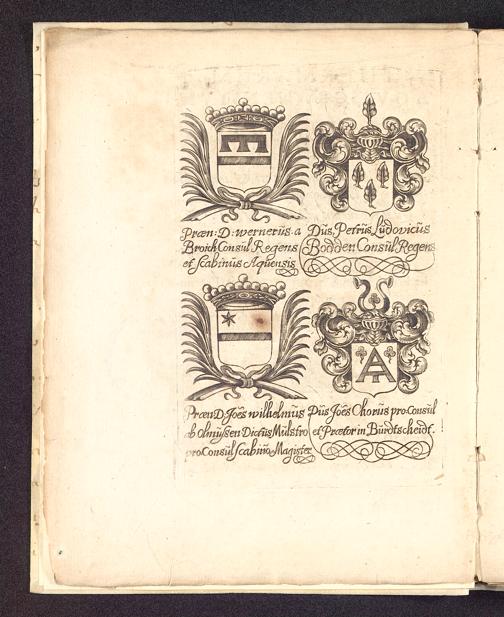 Præn: D: wernerüs a
Broich Consül Regens
et scabinüs Aqüensis
Düs, Petrüs Lüdovicüs
Bodden Consül Regens
Præn D Joës wilhelmüs
ab Olmüssen Dictüs Mülstro
pro Consül scabinö Magister
Düs Joës Chorüs pro Consül
et Prætor in Bürdtscheidt.